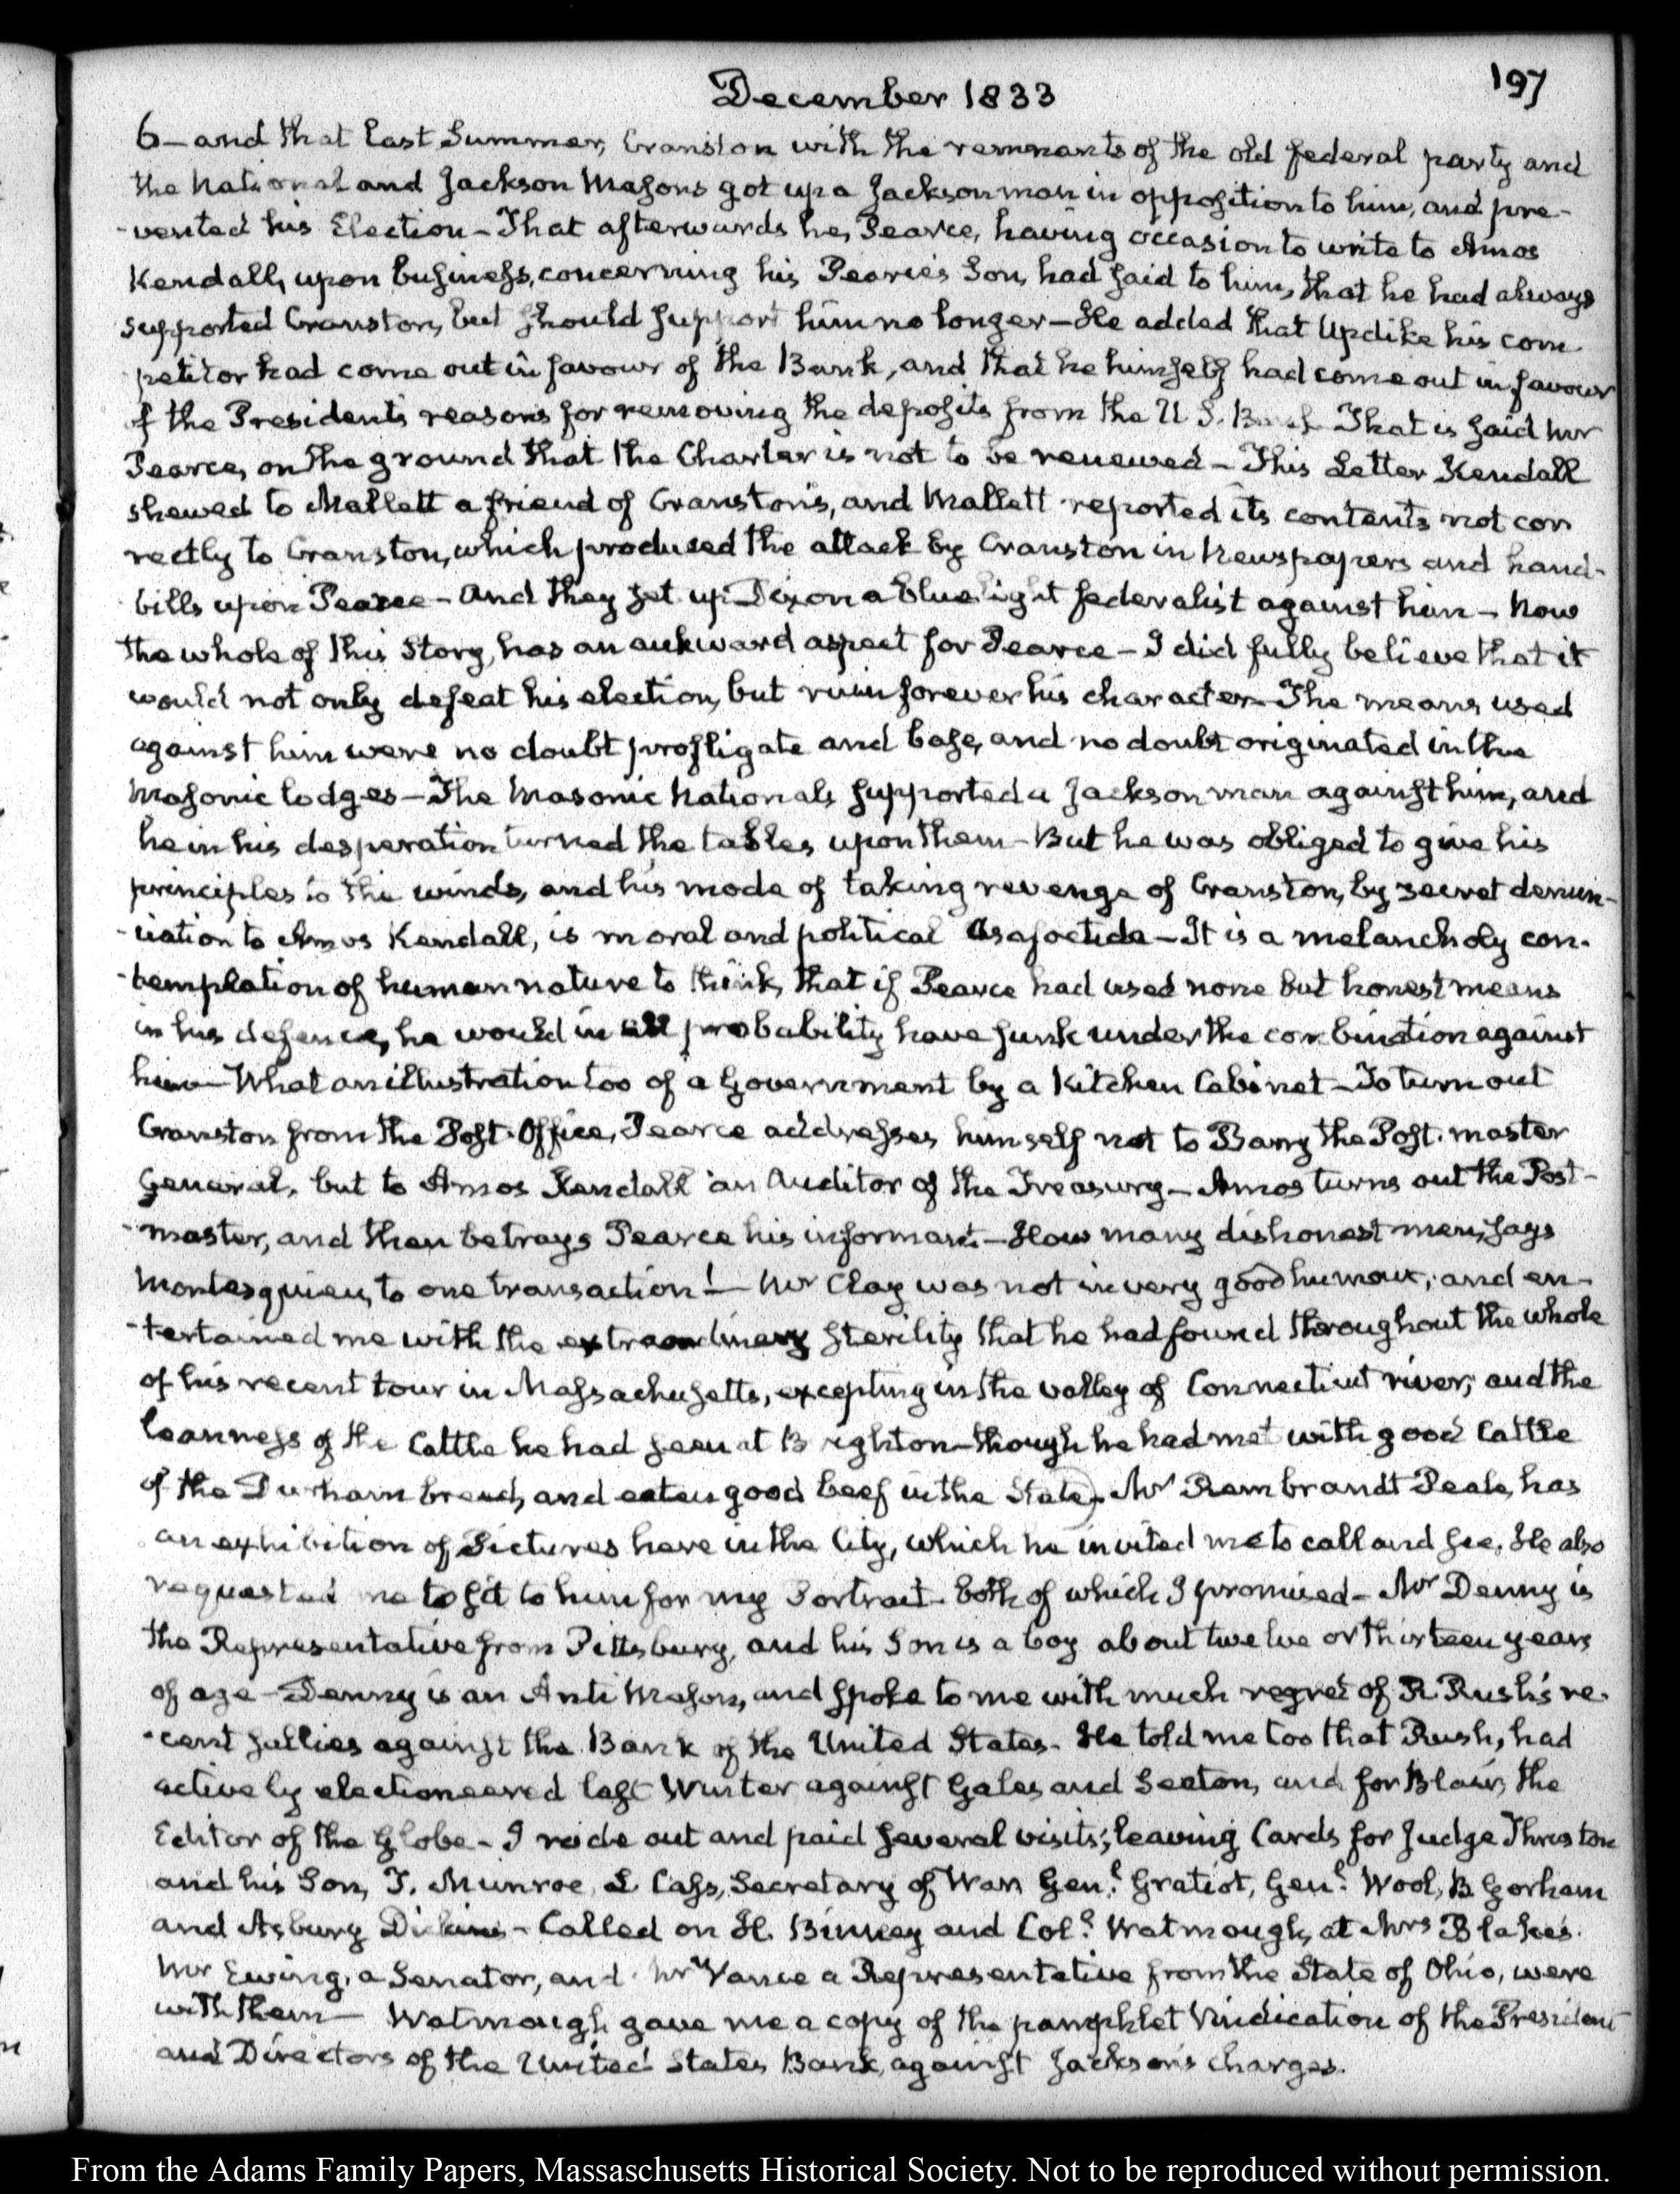 December 1833
197
6 – and that last Summer, Cranston with the remnants of the old federal party and
the National and Jackson Masons got up a Jackson man in opposition to him, and pre-
-vented his Election – That afterwards he, Pearce, having occasion to write to Amos
Kendall, upon business, concerning his Pearce's Son, had said to him, that he had always
supported Cranston, but should support him no longer – He added that Updike his com-
petitor had come out in favour of the Bank, and that he himself had come out in favour
of the President's reasons for removing the deposits from the U.S. Bank. That is said Mr
Pearce, on the ground that the Charter is not to be renewed – This Letter Kendall
shewed to Mallett a friend of Cranston's, and Mallett reported its contents not cor
rectly to Cranston, which produced the attack by Cranston in Newspapers and hand-
bills upon Pearce – And they set up Dixon a blue light federalist against him – Now
the whole of this Story, has an aukward aspect for Pearce – I did fully believe that it
would not only defeat his election, but ruin forever his character – The means used
against him were no doubt profligate and base, and no doubt originated in the
Masonic lodges – The Masonic Nationals supported a Jackson man against him, and
he in his desperation turned the tables upon them – But he was obliged to give his
principles to the winds, and his mode of taking revenge of Cranston, by secret denun-
-ciation to Amos Kendall, is moral and political Asafoetida – It is a melancholy con-
-templation of human nature to think, that if Pearce had used none but honest means
in his defence, he would in all probability have sunk under the combination against
him – What an illustration too of a Government by a Kitchen Cabinet – To turn out
Cranston from the Post-Office, Pearce addresses himself not to Barry the Post-master
General, but to Amos Kendall an Auditor of the Treasury – Amos turns out the Post-
-master, and then betrays Pearce his informant – How many dishonest men, says
Montesquieu, to one transaction! – Mr Clay was not in very good humour, and en-
-tertained me with the extraordinary sterility that he had found throughout the whole
of his recent tour in Massachusetts, excepting in the valley of Connecticut river; and the
leanness of the Cattle he had seen at Brighton – though he had met with good Cattle
of the Durham breed, and eaten good beef in the State). Mr Rembrandt Peale, has
an exhibition of Pictures here in the City, which he invited me to call and see. He also
requested me to sit to him for my Portrait – both of which I promised – Mr Denny is
the Representative from Pittsburg, and his Son is a boy about twelve or thirteen years
of age – Denny is an Anti Mason, and spoke to me with much regret of R. Rush's re-
-cent sallies against the Bank of the United States – He told me too that Rush, had
actively electioneered last Winter against Gales and Seaton, and for Blair, the
Editor of the Globe – I rode out and paid several visits; leaving Cards for Judge Thruston
and his Son, T. Munroe, L Cass, Secretary of War, Genl. Gratiot, Genl. Wool, B Gorham
and Asbury Dickins – Called on H. Binney and Coll. Watmough, at Mrs Blake's.
Mr Ewing, a Senator, and Mr Vance a Representative from the State of Ohio, were
with them – Watmough gave me a copy of the pamphlet Vindication of the President
and Directors of the United States Bank, against Jackson's charges.
From the Adams Family Papers, Massaschusetts Historical Society. Not to be reproduced without permission.